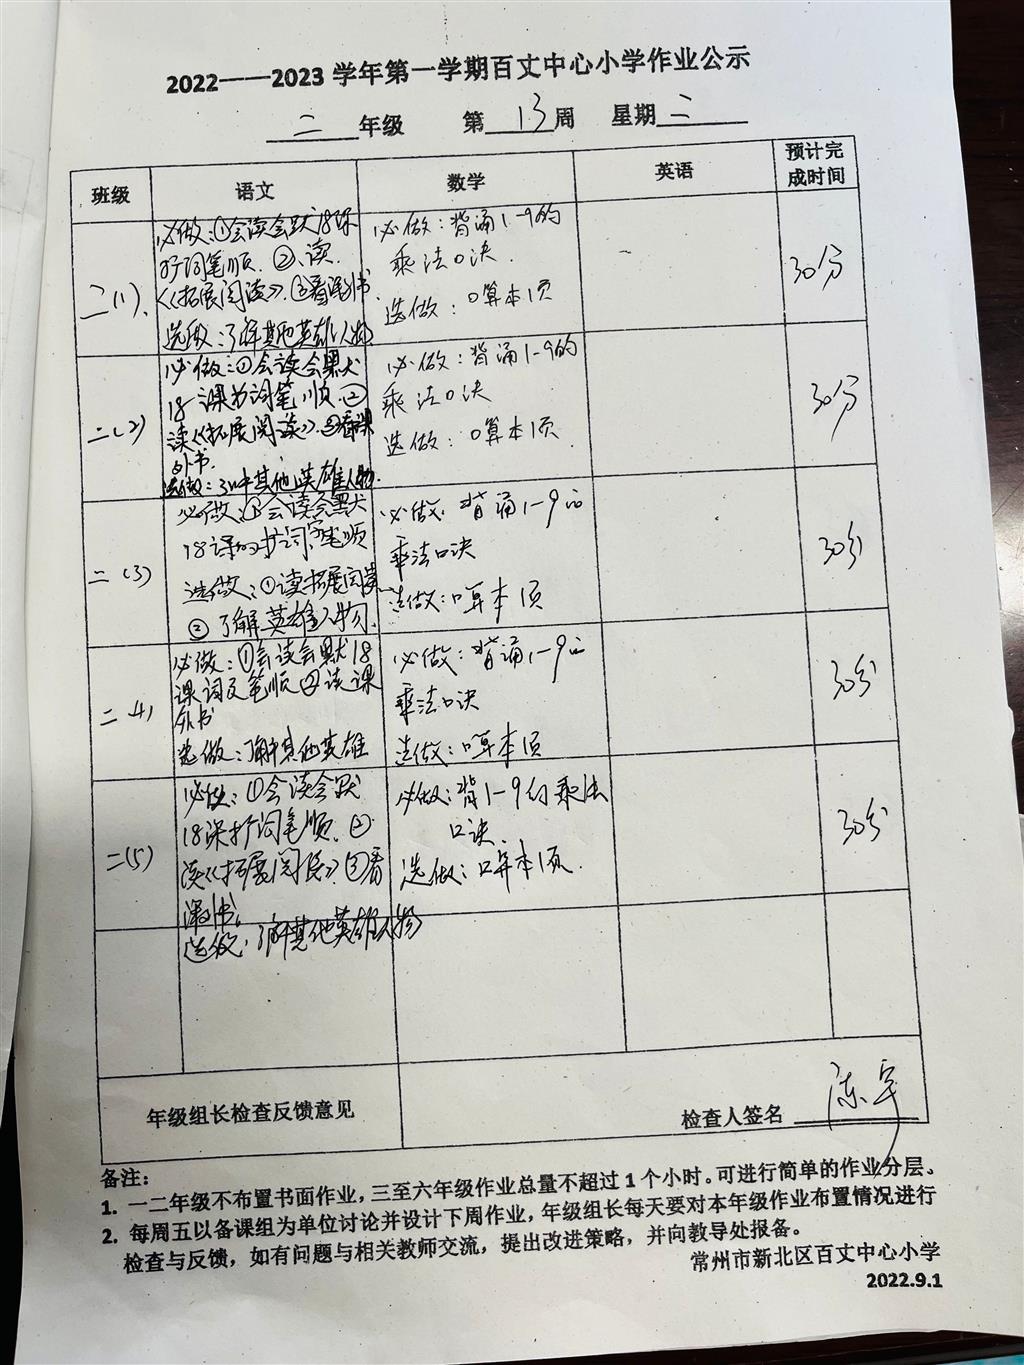 2022——2023 学年第一学期百丈中心小学作业公示
二 年级 第 13 周 星期 三
班级 语文 数学 英语 预计完成时间
二(1)
必做:①会读会默18课
扩词笔顺.②、读.
《拓展阅读》.③看课外书
选做:了解其他英雄人物
必做:背诵1-9的
乘法口决.
选做:口算本1页
30分
二(2)
必做:①会读会默
18课 词笔顺.②
读《拓展阅读》.③看课
外书.
选做:了解其他英雄人物.
必做:背诵1-9的
乘法口决
选做:口算本1页.
30分
二(3)
必做:①会读会默
18课的扩词笔顺
选做:①读拓展阅读
②了解英雄人物.
必做:背诵1-9的
乘法口决
选做:口算本1页
30分
二(4)
必做:①会读会默18
课词及笔顺②读课
外书
选做:了解其他英雄
必做:背诵1-9的
乘法口诀
选做:口算本1页
30分
二(5)
必做:①会读会默
18课扩词笔顺.②
读《拓展阅读》③看
课外书.
选做:了解其他英雄人物
必做:背1-9的乘法
口诀.
选做:口算本1页.
30分
年级组长检查反馈意见
检查人签名
备注:
1. 一二年级不布置书面作业,三至六年级作业总量不超过1个小时。可进行简单的作业分层、
2. 每周五以备课组为单位讨论并设计下周作业,年级组长每天要对本年级作业布置情况进行
检查与反馈,如有问题与相关教师交流,提出改进策略,并向教导处报备。
常州市新北区百丈中心小学
2022.9.1